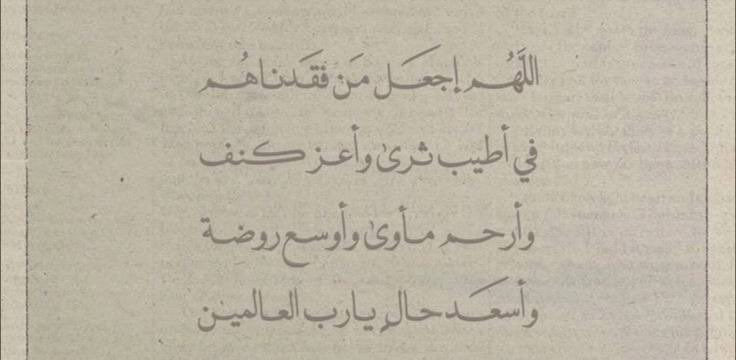 اللَّهُم إجعَل مَن فقَدناهُم
في أطيب ثرىٰ وأعز كنف
وأرحم مأوىٰ وأوسع روضِة
وأسعَد حالٍ يارب العالمين